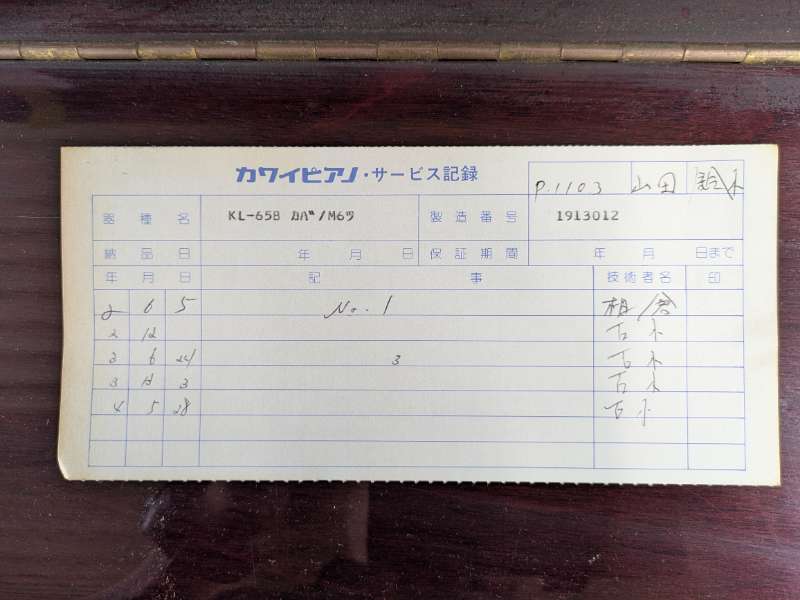 カワイピアノ・サービス記録
P.1103 山田 鈴木
器種名 KL-658 カバ/M6ツ 製造番号 1913012
納品日 年 月 日 保証期間 年 月 日まで
年 月 日 記 事 技術者名 印
2 6 5 No.1
2 12
3 6 24 3
3 12 3
4 5 28